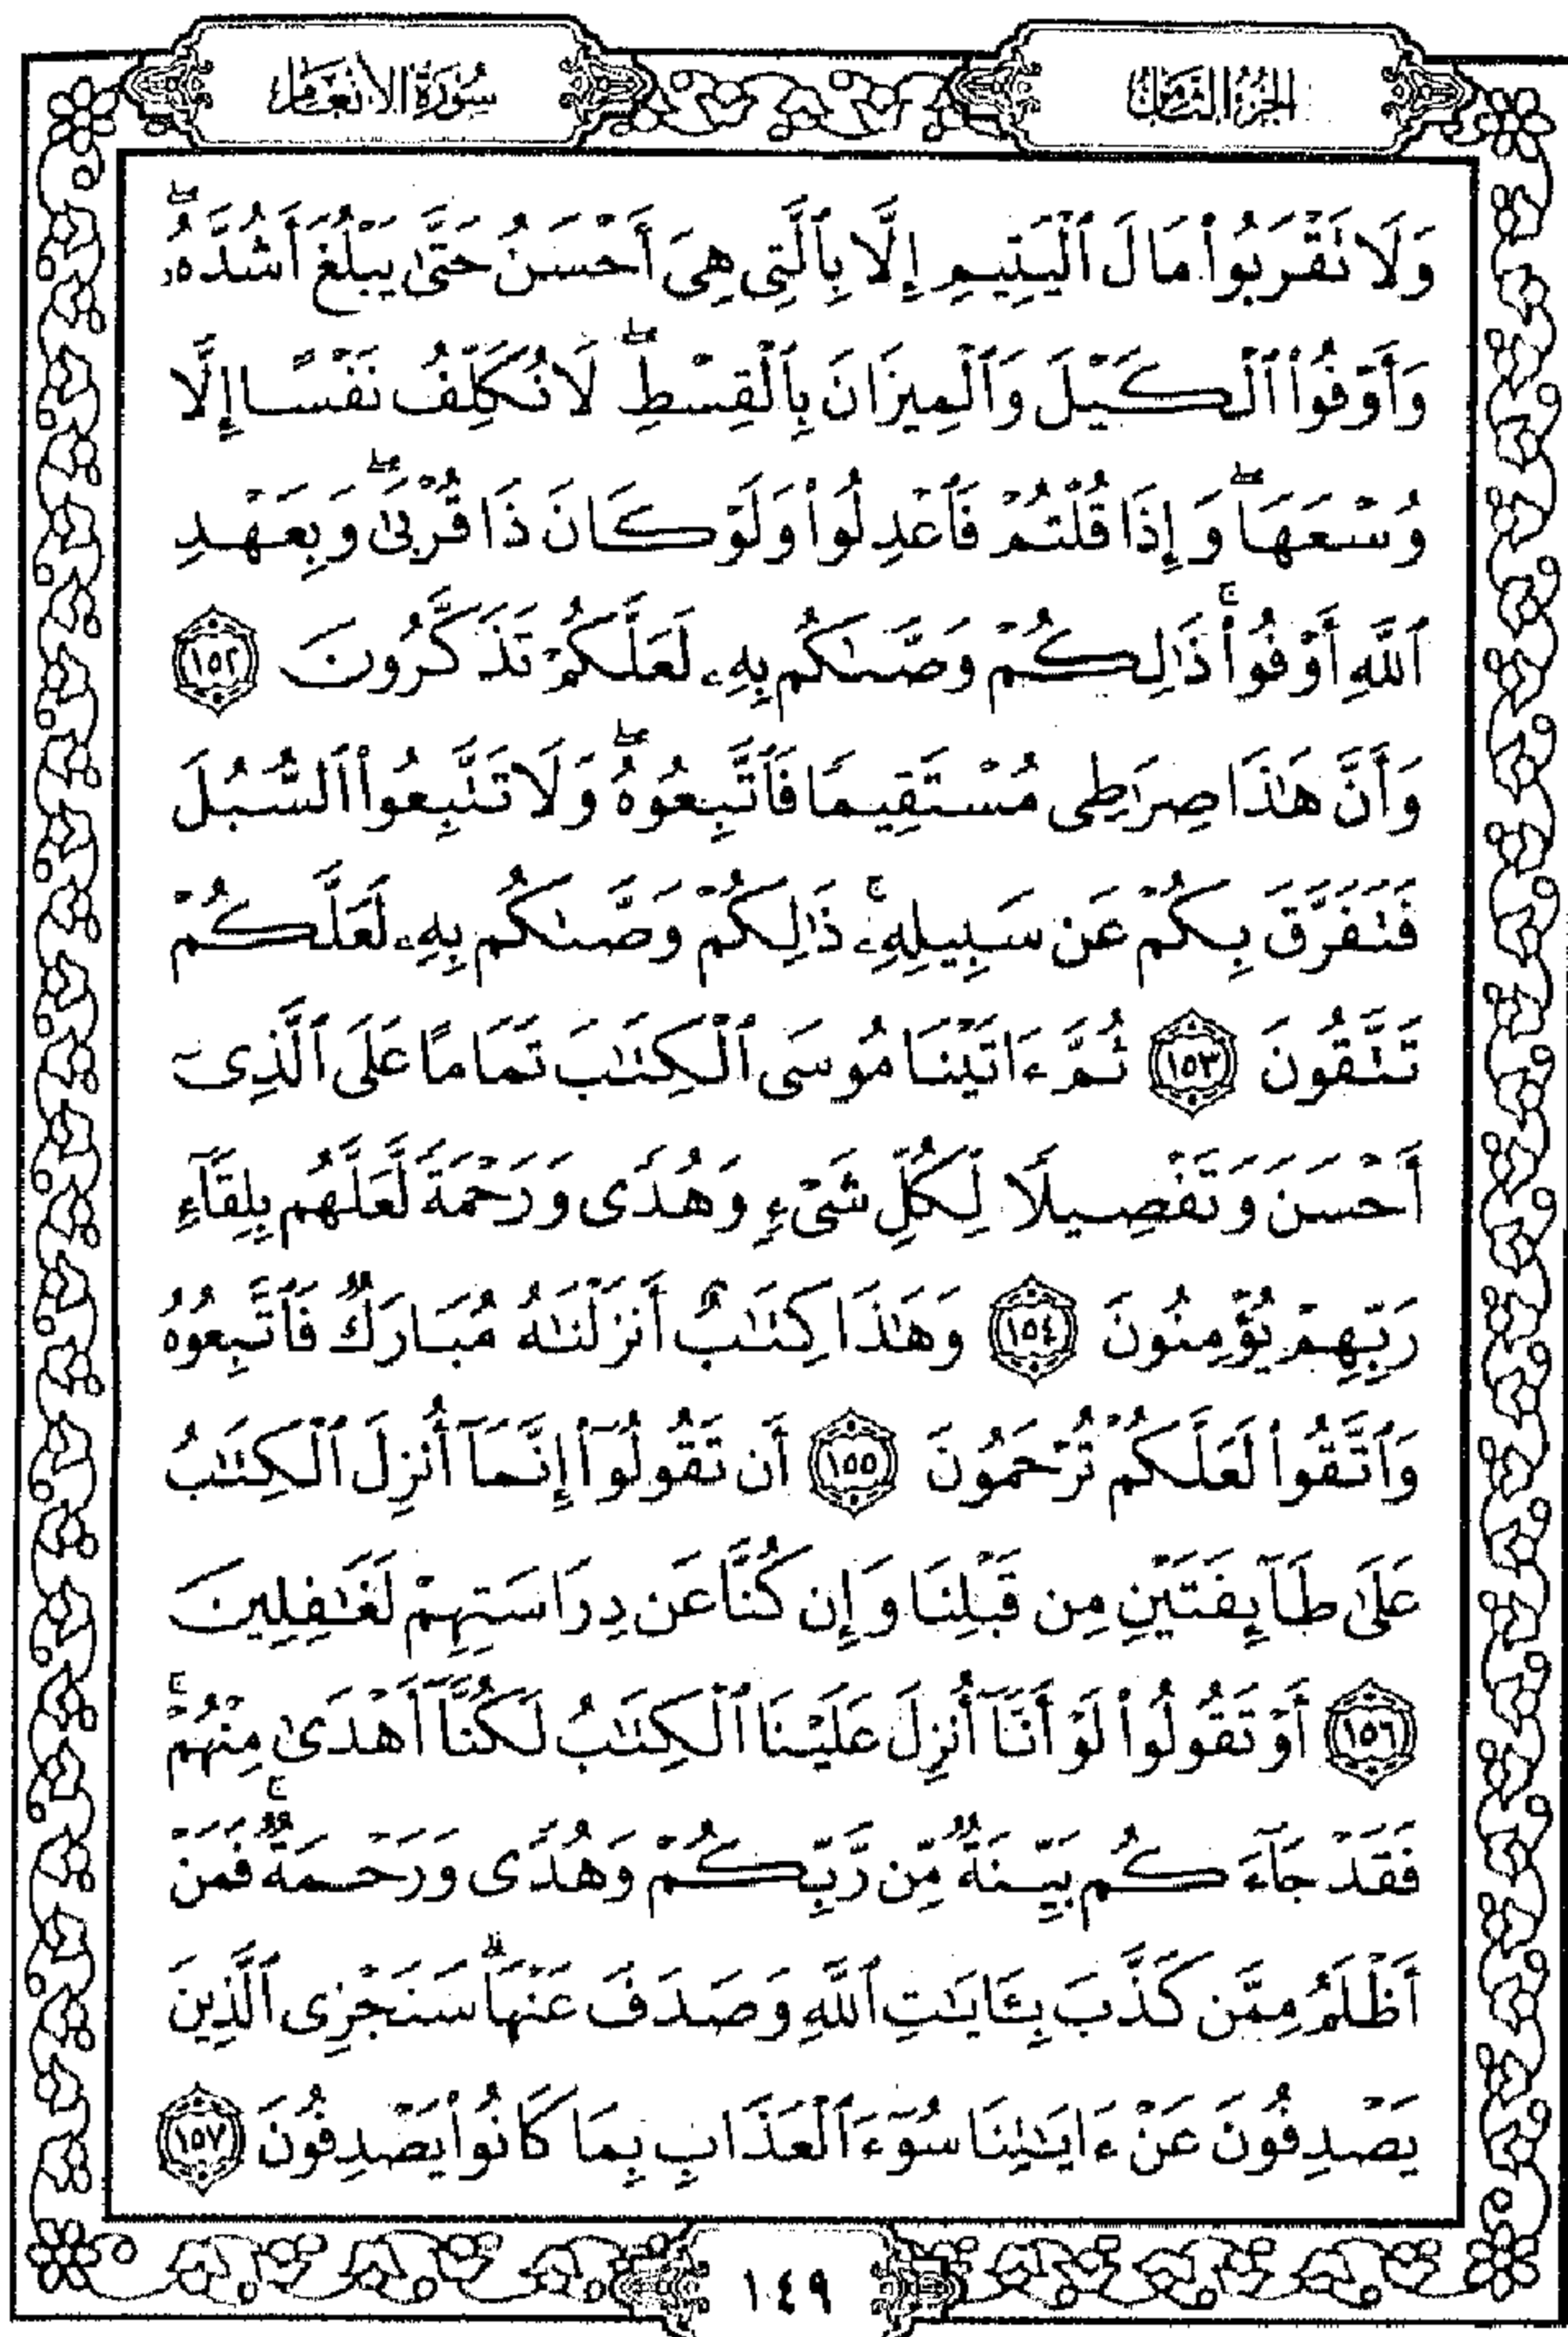 الجزء الثامن
سورة الأنعام
وَلَا تَقْرَبُوا۟ مَالَ ٱلْيَتِيمِ إِلَّا بِٱلَّتِى هِىَ أَحْسَنُ حَتَّىٰ يَبْلُغَ أَشُدَّهُۥۖ
وَأَوْفُوا۟ ٱلْكَيْلَ وَٱلْمِيزَانَ بِٱلْقِسْطِۖ لَا نُكَلِّفُ نَفْسًا إِلَّا
وُسْعَهَاۖ وَإِذَا قُلْتُمْ فَٱعْدِلُوا۟ وَلَوْ كَانَ ذَا قُرْبَىٰۖ وَبِعَهْدِ
ٱللَّهِ أَوْفُوا۟ۚ ذَٰلِكُمْ وَصَّىٰكُم بِهِۦ لَعَلَّكُمْ تَذَكَّرُونَ ١٥٢
وَأَنَّ هَٰذَا صِرَٰطِى مُسْتَقِيمًا فَٱتَّبِعُوهُۖ وَلَا تَتَّبِعُوا۟ ٱلسُّبُلَ
فَتَفَرَّقَ بِكُمْ عَن سَبِيلِهِۦۚ ذَٰلِكُمْ وَصَّىٰكُم بِهِۦ لَعَلَّكُمْ
تَتَّقُونَ ١٥٣ ثُمَّ ءَاتَيْنَا مُوسَى ٱلْكِتَٰبَ تَمَامًا عَلَى ٱلَّذِىٓ
أَحْسَنَ وَتَفْصِيلًا لِّكُلِّ شَىْءٍ وَهُدًى وَرَحْمَةً لَّعَلَّهُم بِلِقَآءِ
رَبِّهِمْ يُؤْمِنُونَ ١٥٤ وَهَٰذَا كِتَٰبٌ أَنزَلْنَٰهُ مُبَارَكٌ فَٱتَّبِعُوهُ
وَٱتَّقُوا۟ لَعَلَّكُمْ تُرْحَمُونَ ١٥٥ أَن تَقُولُوٓا۟ إِنَّمَآ أُنزِلَ ٱلْكِتَٰبُ
عَلَىٰ طَآئِفَتَيْنِ مِن قَبْلِنَا وَإِن كُنَّا عَن دِرَاسَتِهِمْ لَغَٰفِلِينَ
١٥٦ أَوْ تَقُولُوا۟ لَوْ أَنَّآ أُنزِلَ عَلَيْنَا ٱلْكِتَٰبُ لَكُنَّآ أَهْدَىٰ مِنْهُمْۚ
فَقَدْ جَآءَكُم بَيِّنَةٌ مِّن رَّبِّكُمْ وَهُدًى وَرَحْمَةٌۚ فَمَنْ
أَظْلَمُ مِمَّن كَذَّبَ بِـَٔايَٰتِ ٱللَّهِ وَصَدَفَ عَنْهَاۗ سَنَجْزِى ٱلَّذِينَ
يَصْدِفُونَ عَنْ ءَايَٰتِنَا سُوٓءَ ٱلْعَذَابِ بِمَا كَانُوا۟ يَصْدِفُونَ ١٥٧
١٤٩